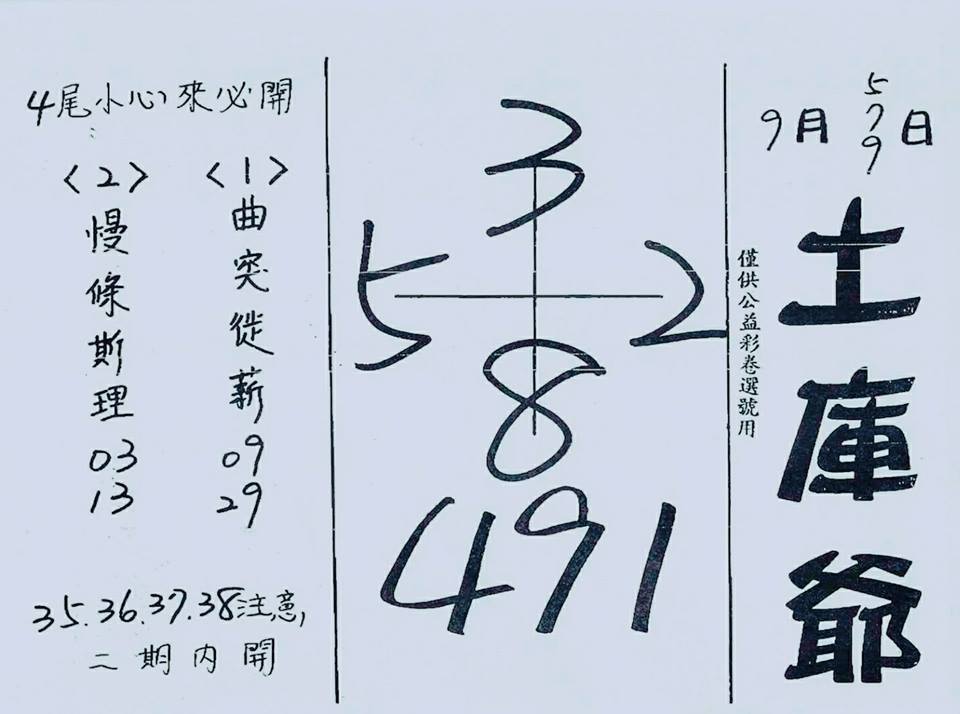 9月5 7 9日
土庫爺
僅供公益彩卷選號用
3
5 2
8
491
4尾小心來必開
<1>
曲突徙薪
09
29
<2>
慢條斯理
03
13
35.36.37.38注意,
二期內開